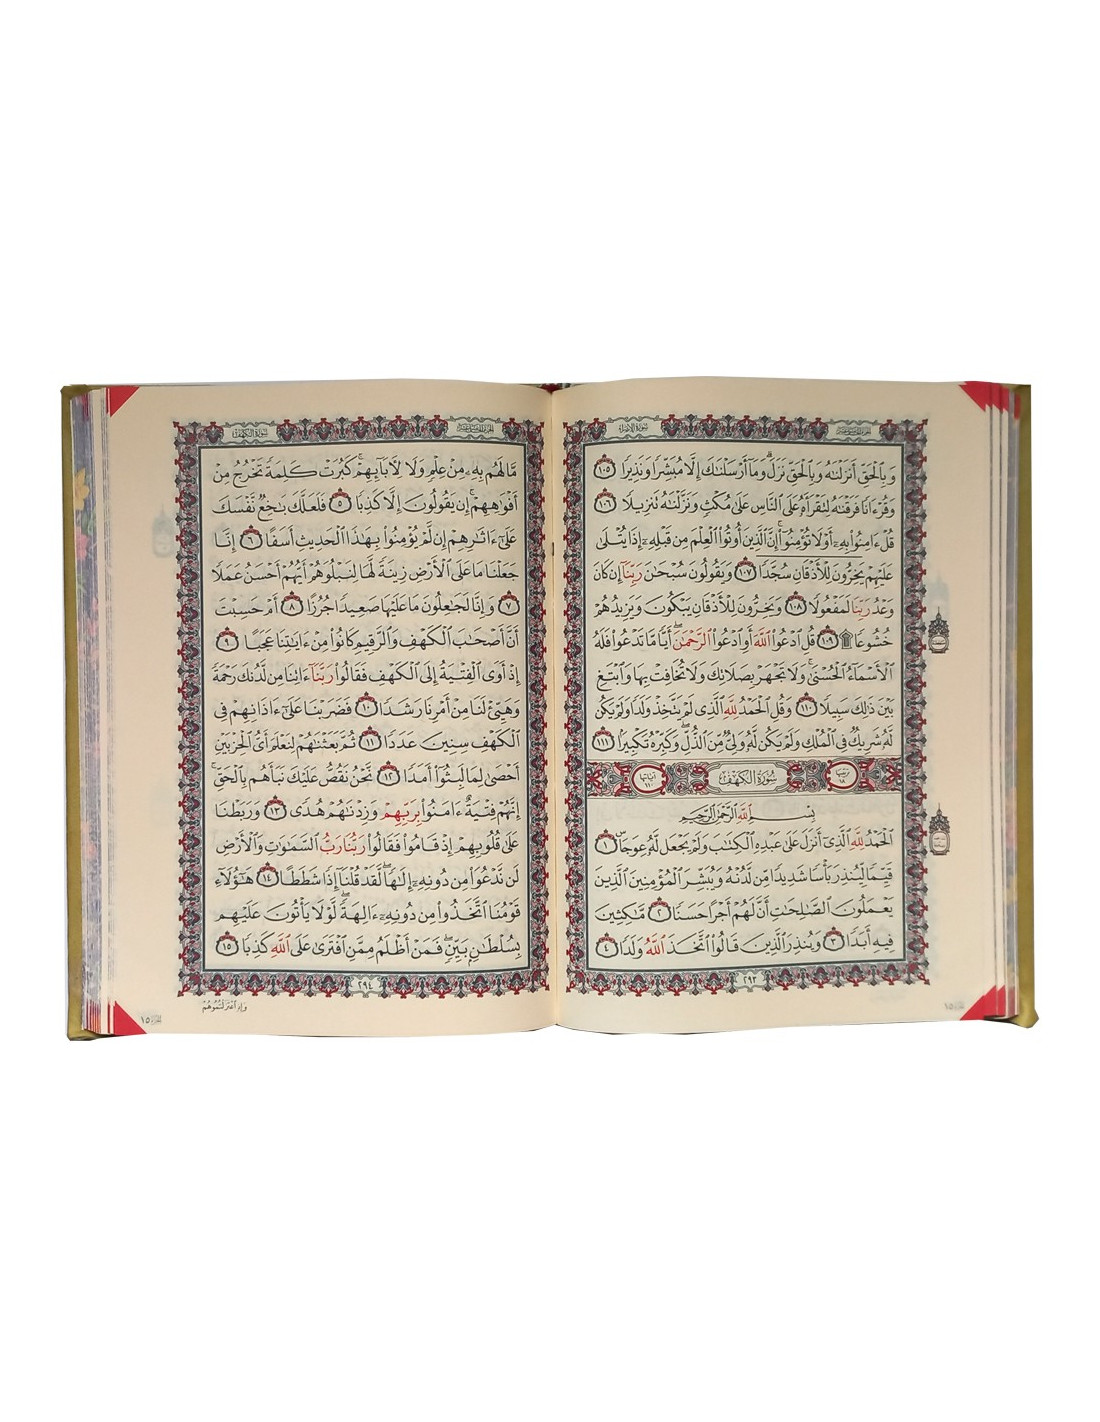 سورة الإسراء
وَبِٱلْحَقِّ أَنزَلْنَٰهُ وَبِٱلْحَقِّ نَزَلَ ۗ وَمَآ أَرْسَلْنَٰكَ إِلَّا مُبَشِّرًا وَنَذِيرًا ١٠٥
وَقُرْءَانًا فَرَقْنَٰهُ لِتَقْرَأَهُۥ عَلَى ٱلنَّاسِ عَلَىٰ مُكْثٍ وَنَزَّلْنَٰهُ تَنزِيلًا ١٠٦
قُلْ ءَامِنُوا۟ بِهِۦٓ أَوْ لَا تُؤْمِنُوٓا۟ ۚ إِنَّ ٱلَّذِينَ أُوتُوا۟ ٱلْعِلْمَ مِن قَبْلِهِۦٓ إِذَا يُتْلَىٰ
عَلَيْهِمْ يَخِرُّونَ لِلْأَذْقَانِ سُجَّدًا ١٠٧ وَيَقُولُونَ سُبْحَٰنَ رَبِّنَآ إِن كَانَ
وَعْدُ رَبِّنَا لَمَفْعُولًا ١٠٨ وَيَخِرُّونَ لِلْأَذْقَانِ يَبْكُونَ وَيَزِيدُهُمْ
خُشُوعًا ۩ ١٠٩ قُلِ ٱدْعُوا۟ ٱللَّهَ أَوِ ٱدْعُوا۟ ٱلرَّحْمَٰنَ ۖ أَيًّا مَّا تَدْعُوا۟ فَلَهُ
ٱلْأَسْمَآءُ ٱلْحُسْنَىٰ ۚ وَلَا تَجْهَرْ بِصَلَاتِكَ وَلَا تُخَافِتْ بِهَا وَٱبْتَغِ
بَيْنَ ذَٰلِكَ سَبِيلًا ١١٠ وَقُلِ ٱلْحَمْدُ لِلَّهِ ٱلَّذِى لَمْ يَتَّخِذْ وَلَدًا وَلَمْ يَكُن
لَّهُۥ شَرِيكٌ فِى ٱلْمُلْكِ وَلَمْ يَكُن لَّهُۥ وَلِىٌّ مِّنَ ٱلذُّلِّ ۖ وَكَبِّرْهُ تَكْبِيرًۢا ١١١
ترتيبها ١٨ سُورَةُ الكَهْفِ آياتها ١١٠
بِسْمِ ٱللَّهِ ٱلرَّحْمَٰنِ ٱلرَّحِيمِ
ٱلْحَمْدُ لِلَّهِ ٱلَّذِىٓ أَنزَلَ عَلَىٰ عَبْدِهِ ٱلْكِتَٰبَ وَلَمْ يَجْعَل لَّهُۥ عِوَجَاۜ ١
قَيِّمًا لِّيُنذِرَ بَأْسًا شَدِيدًا مِّن لَّدُنْهُ وَيُبَشِّرَ ٱلْمُؤْمِنِينَ ٱلَّذِينَ
يَعْمَلُونَ ٱلصَّٰلِحَٰتِ أَنَّ لَهُمْ أَجْرًا حَسَنًا ٢ مَّٰكِثِينَ
فِيهِ أَبَدًا ٣ وَيُنذِرَ ٱلَّذِينَ قَالُوا۟ ٱتَّخَذَ ٱللَّهُ وَلَدًا ٤
٢٩٣
سورة الكهف
مَّا لَهُم بِهِۦ مِنْ عِلْمٍ وَلَا لِءَابَآئِهِمْ ۚ كَبُرَتْ كَلِمَةً تَخْرُجُ مِنْ
أَفْوَٰهِهِمْ ۚ إِن يَقُولُونَ إِلَّا كَذِبًا ٥ فَلَعَلَّكَ بَٰخِعٌ نَّفْسَكَ
عَلَىٰٓ ءَاثَٰرِهِمْ إِن لَّمْ يُؤْمِنُوا۟ بِهَٰذَا ٱلْحَدِيثِ أَسَفًا ٦ إِنَّا
جَعَلْنَا مَا عَلَى ٱلْأَرْضِ زِينَةً لَّهَا لِنَبْلُوَهُمْ أَيُّهُمْ أَحْسَنُ عَمَلًا
٧ وَإِنَّا لَجَٰعِلُونَ مَا عَلَيْهَا صَعِيدًا جُرُزًا ٨ أَمْ حَسِبْتَ
أَنَّ أَصْحَٰبَ ٱلْكَهْفِ وَٱلرَّقِيمِ كَانُوا۟ مِنْ ءَايَٰتِنَا عَجَبًا ٩
إِذْ أَوَى ٱلْفِتْيَةُ إِلَى ٱلْكَهْفِ فَقَالُوا۟ رَبَّنَآ ءَاتِنَا مِن لَّدُنكَ رَحْمَةً
وَهَيِّئْ لَنَا مِنْ أَمْرِنَا رَشَدًا ١٠ فَضَرَبْنَا عَلَىٰٓ ءَاذَانِهِمْ فِى
ٱلْكَهْفِ سِنِينَ عَدَدًا ١١ ثُمَّ بَعَثْنَٰهُمْ لِنَعْلَمَ أَىُّ ٱلْحِزْبَيْنِ
أَحْصَىٰ لِمَا لَبِثُوٓا۟ أَمَدًا ١٢ نَّحْنُ نَقُصُّ عَلَيْكَ نَبَأَهُم بِٱلْحَقِّ ۚ
إِنَّهُمْ فِتْيَةٌ ءَامَنُوا۟ بِرَبِّهِمْ وَزِدْنَٰهُمْ هُدًى ١٣ وَرَبَطْنَا
عَلَىٰ قُلُوبِهِمْ إِذْ قَامُوا۟ فَقَالُوا۟ رَبُّنَا رَبُّ ٱلسَّمَٰوَٰتِ وَٱلْأَرْضِ
لَن نَّدْعُوَا۟ مِن دُونِهِۦٓ إِلَٰهًا ۖ لَّقَدْ قُلْنَآ إِذًا شَطَطًا ١٤ هَٰٓؤُلَآءِ
قَوْمُنَا ٱتَّخَذُوا۟ مِن دُونِهِۦٓ ءَالِهَةً ۖ لَّوْلَا يَأْتُونَ عَلَيْهِم
بِسُلْطَٰنٍۭ بَيِّنٍ ۖ فَمَنْ أَظْلَمُ مِمَّنِ ٱفْتَرَىٰ عَلَى ٱللَّهِ كَذِبًا ١٥
٢٩٤
وَإِذِ اعْتَزَلْتُمُوهُمْ
الجزء ١٥